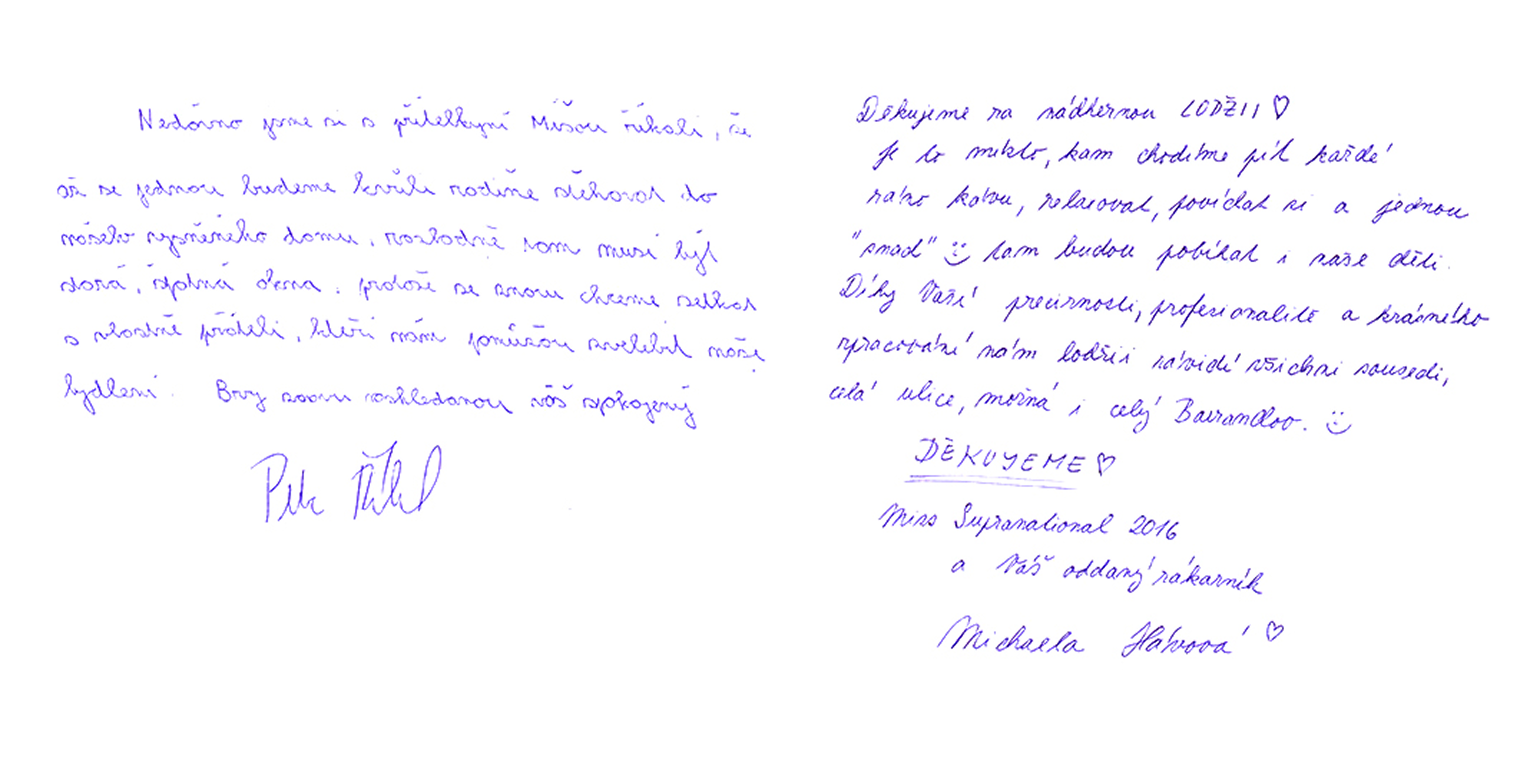 Nedávno jsme si s přítelkyní Míšou říkali, že
až se jednou budeme kvůli rodině stěhovat do
našeho vysněného domu, rozhodně tam musí být
dorá, okna, protože se znovu chceme setkat
s vlastně přáteli, kteří nám pomůžou zvelebit naše
bydlení. Brzy znovu nashledanou váš spokojený
Petr
Děkujeme za nádhernou LODŽII ♡
Je to místo, kam chodíme pít každé
ráno kávu, relaxovat, povídat si a jednou
"snad" tam budou pobíhat i naše děti.
Díky Vaší preciznosti, profesionalitě a krásného
zpracování nám lodžii závidí všichni sousedi,
celá ulice, možná i celý Barrandov.
DĚKUJEME ♡
Miss Supranational 2016
a Váš oddaný zákazník
Michaela Hávová ♡